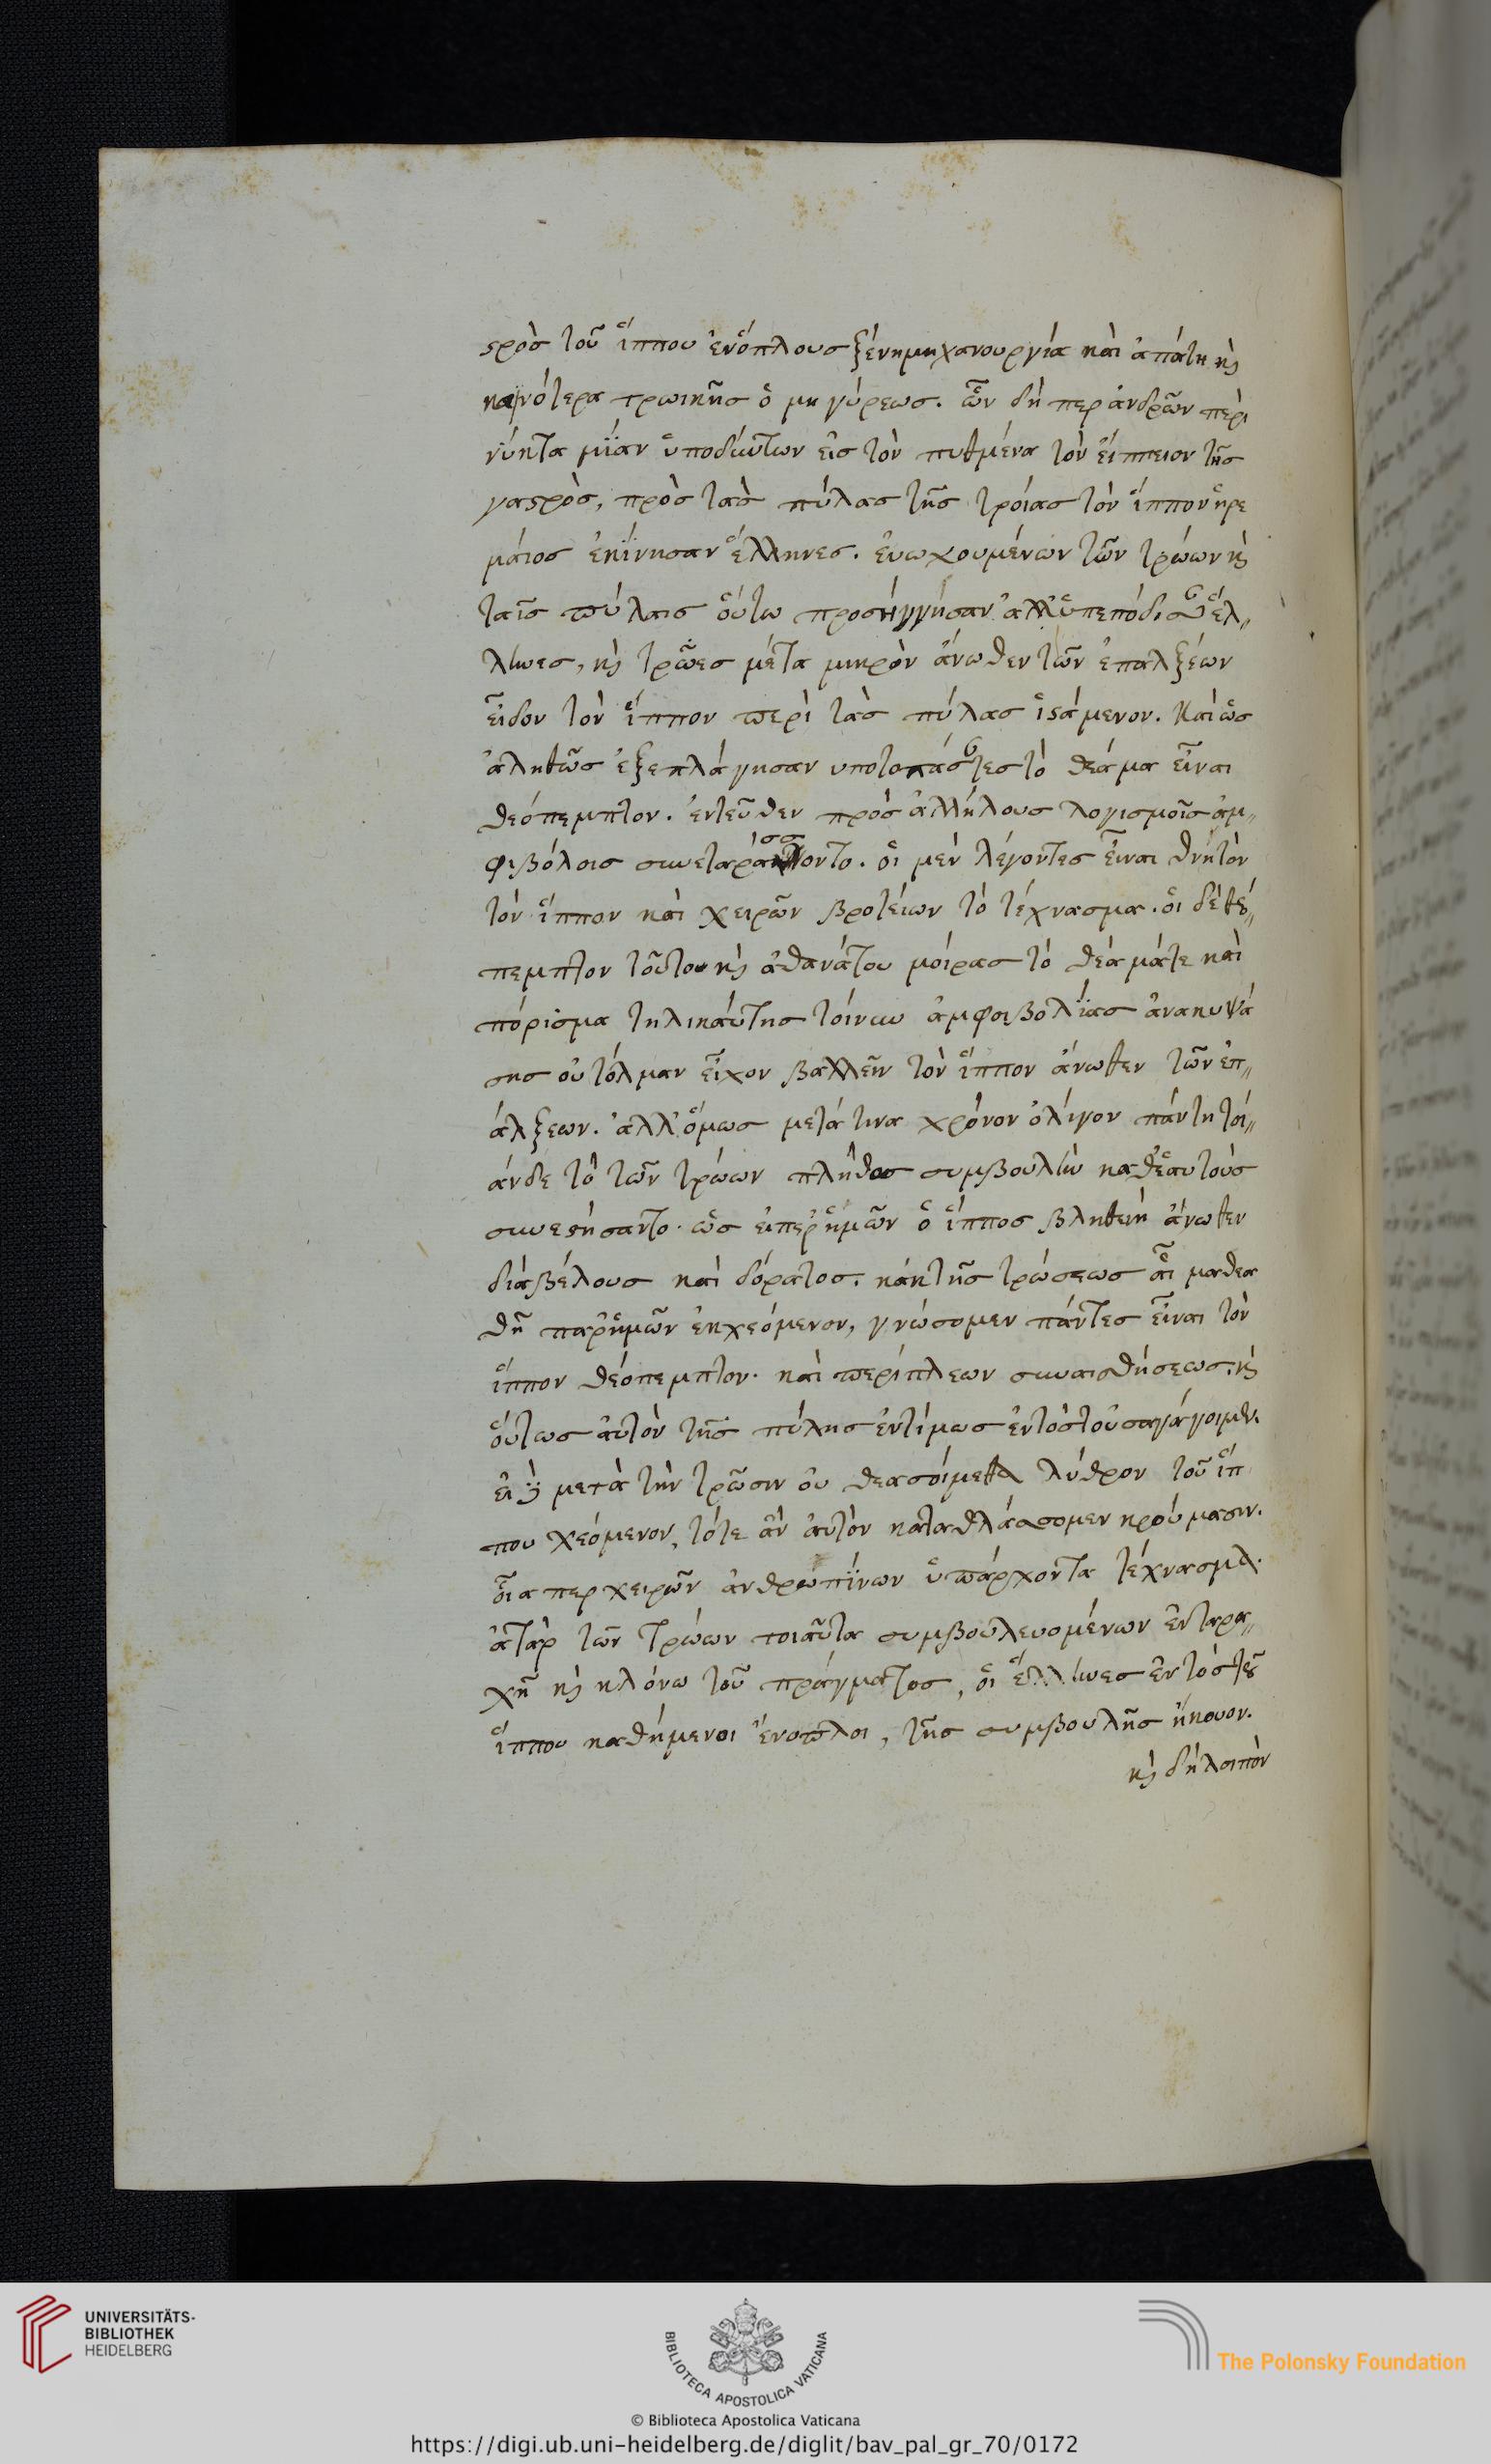 στρὸς τοῦ ἵππου ἐνόπλους ξένη μηχανουργία καὶ ἀπάτη κ̀
καινότερα τρωικῆς ὁμηγύρεως. ὧν δήπερ ἀνδρῶν περὶ
νύκτα μίαν ὑποδύντων εἰς τὸν πυθμένα τὸν ἵππειον τῆς
γαστρὸς, πρὸς τὰς πύλας τῆς τροίας τὸν ἵππον ἠρε
μαίος ἐκίνησαν ἕλληνες. εὐωχουμένων τῶν τρώων κ̀
ταῖς πύλαις οὕτω προσήγγησαν ἀλλ' ὑπεπόδισαν ἕλ„
ληνες, κ̀ τρῶες μέτα μικρὸν ἄνωθεν τῶν ἐπαλξέων
εἶδον τὸν ἵππον περὶ τὰς πύλας ἱστάμενον. καὶ ὡς
ἀληθῶς ἐξεπλάγησαν υποτοπάσαντες τὸ θεάμα εἶναι
θεόπεμπτον. ἐντεῦθεν πρὸς ἀλλήλους λογισμοῖς ἀμ„
φιβόλοις συνεταράσσοντο. οἱ μὲν λέγοντες εἶναι θνητὸν
τὸν ἵππον καὶ χειρῶν βροτείων τὸ τέχνασμα. οἱ δὲ θεό„
πεμπτον τοῦτον κ̀ ἀθανάτου μοίρας τὸ θεάμάτε καὶ
πόρισμα τηλικαύτης τοίνυν ἀμφοιβολίας ἀνακυψά
σης οὐ τόλμαν εἶχον βαλλεῖν τὸν ἵππον ἄνωθεν τῶν ἐπ„
άλξεων. ἀλλ' ὅμως μετά τινα χρόνον ὀλίγον πάντη τοι„
άνδε τὸ τῶν τρώων πλῆθος συμβουλὴν καθ' ἑαυτοὺς
συνεστήσαντο. ὡς εἴπερ ἡμῶν ὁ ἵππος βληθείη ἄνωθεν
διὰ βέλους καὶ δόρατος. κἀκ τῆς τρώσεως αἷμα θεα
θῆ παρ' ἡμῶν ἐκχεόμενον, γνώσομεν πάντες εἶναι τὸν
ἵππον θεόπεμπτον. καὶ περίπλεων συναισθήσεως. κ̀
οὕτως αὐτὸν τῆς πύλης ἐντίμως ἐντὸς τοῦ σαγάγοιμεν.
εἰ δὲ μετὰ τὴν τρῶσιν οὐ θεασοίμεθα λύθρον τοῦ ἵπ
που χεόμενον, τότε ἂν αὐτὸν καταθλάσομεν κρούμασιν.
οἷα περ χειρῶν ἀνθρωπίνων ὑπάρχοντα τέχνασμα.
ἀτὰρ τῶν τρώων τοιαῦτα συμβουλευσμένων ἐν ταρα„
χῆ κ̀ κλόνω τοῦ πράγματος, οἱ ἕλληνες ἐντὸς τοῦ
ἵππου καθήμενοι ἔνοπλοι, τῆς συμβουλῆς ἤκουον.
κ̀ δὴ λοιπὸν
UNIVERSITÄTS-
BIBLIOTHEK
HEIDELBERG
BIBLIOTECA APOSTOLICA VATICANA
The Polonsky Foundation
© Biblioteca Apostolica Vaticana
https://digi.ub.uni-heidelberg.de/diglit/bav_pal_gr_70/0172